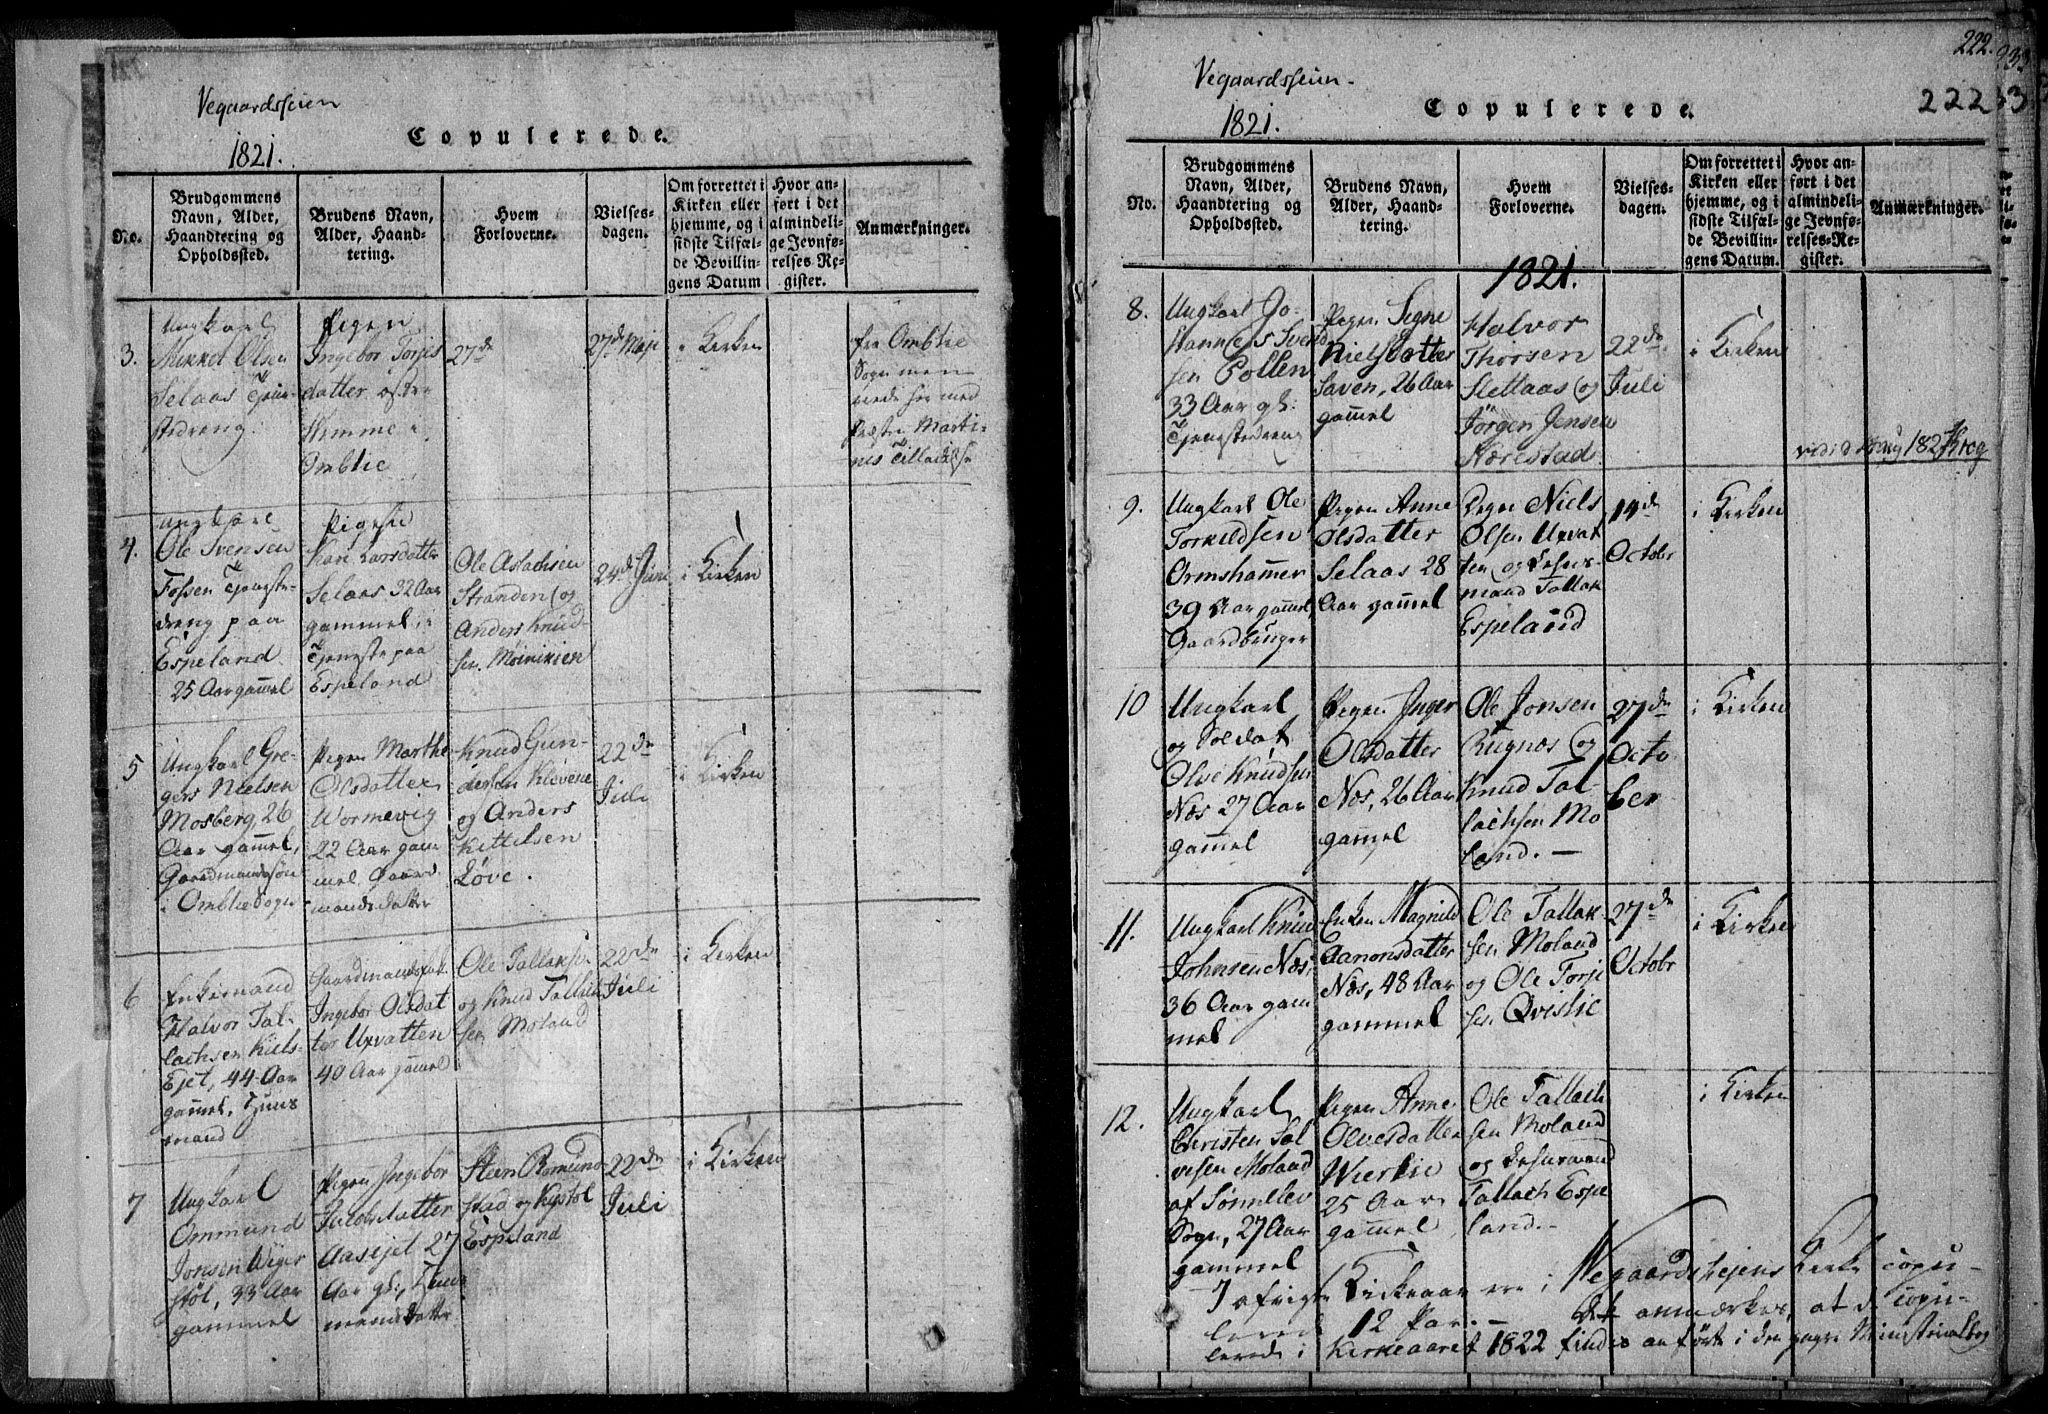 Vegaardsseien
1821.
Copulerede.
No.
Brudgommens
Navn, Alder,
Haandtering og
Opholdssted.
Brudens Navn,
Alder, Haand-
tering.
Hvem
Forloverne.
Vielses-
dagen.
Om forrettet i
Kirken eller
hjemme, og i
sidste Tilfæl-
de Bevillin-
gens Datum
Hvor an-
ført i det
almindeli-
ge Jevnfø-
relses-Re-
gister.
Anmærkninger.
3.
Ungkarl
Mikkel Olsen
Selaas Tjen-
stedreng.
Pigen
Ingebor Torjes
datter
Omblie
27de
27de Maji
i Kirken
fra Omblie
Sogn men
viede her med
Præsten Marti-
nis Tilladelse
4.
Ungkarl
Ole Svensen
Fossen Tjenste-
dreng paa
Espeland
25 Aar gammel
Pigen
Kari Larsdatter
Selaas 32 Aar
gammel i
Tjenste paa
Espeland
Ole Aslachsen
Stranden og
Anders Knud-
sen Moinikien
24de Juni
i Kirken
5
Ungkarl Gre-
gers Nielsen
Mosberg, 26
Aar gammel,
Gaardmandssøn
i Omblie Sogn
Pigen Marthe
Olsdatter
Wormevig
22 Aar gam
mel Gaard
mandsdatter
Knud Gun-
dersen Klevene
og Anders
Kittelsen
Løve.
22de
Juli
i Kirken
6
Enkemand
Halvor Tal-
lachsen Kiels-
Ejet, 44 Aar
gammel, Huus
mand
Ingebor Olsdat
ter Uxvatten
40 Aar gammel
Ole Tallaksen
og Knud Tallach
sen Moland
22de
Juli
i Kirken
7
Ungkarl
Ommund
Jonsen Wiger
støl, 33 Aar
gammel
Pigen Ingebor
Jacobsdatter
Aasejet 27
Aar gl., Huus
mandsdatter
Steen Romund
stad og Kystol
Espeland
22de
Juli
i Kirken
222.
Vegaardsseien
1821.
Copulerede.
222
No.
Brudgommens
Navn, Alder,
Haandtering og
Opholdssted.
Brudens Navn,
Alder, Haand-
tering.
Hvem
Forloverne.
Vielses-
dagen.
Om forrettet i
Kirken eller
hjemme, og i
sidste Tilfæl-
de Bevillin-
gens Datum.
Hvor an-
ført i det
almindeli-
ge Jevnfø-
relses-Re-
gister.
Anmærkninger.
1821.
8.
Ungkarl Jo-
hannes Svend
sen Pollen
33 Aar gl.
Tjenstedreng
Pigen Segne
Nielsdatter
Saven, 26 Aar
gammel
Halvor
Thorsen
Slettaas og
Jörgen Jensen
Narestad
22de
Juli
i Kirken
9.
Ungkarl Ole
Torkildsen
Ormshammer
39 Aar gammel,
Gaardbruger
Pigen Anne
Olsdatter
Selaas 28
Aar gammel
Niels
Olsen Uxvat
ten og Lehns-
mand Tallak
Espeland
14de
Octobr
i Kirken
10
Ungkarl
og Soldat
Olve Knudsen
Næs 27 Aar
gammel
Pigen Inger
Olsdatter
Næs, 26 Aar
gammel
Ole Jonsen
Rugnæs og
Knud Tal-
lachsen Mo
land. —
27de
Octo
ber
i Kirken
11.
Ungkarl Knud
Johnsen Næs,
36 Aar gam
mel
Enken Magnild
Aanonsdatter
Næs, 48 Aar
gammel
Ole Tallak
sen Moland
og Ole Torji
sen Qvislie
27de
Octobr
i Kirken
12.
Ungkarl
Christen Sal
vesen Moland
af Sønnelev
Sogn, 27 Aar
gammel
Pigen Anne
Olvesdatter
Wierlie
25 Aar
gammel
Ole Tallach
sen Moland
og Lehnsmand
Tallach Espe
land.—
i Kirken
I afvigte Kirkeaar ere i Vegaardshejens Kirke copu-
lerede 12 Par. — det anmærkes, at de copu-
lerede i Kirkeaaret 1822 findes anførte i den nye Ministerialbog